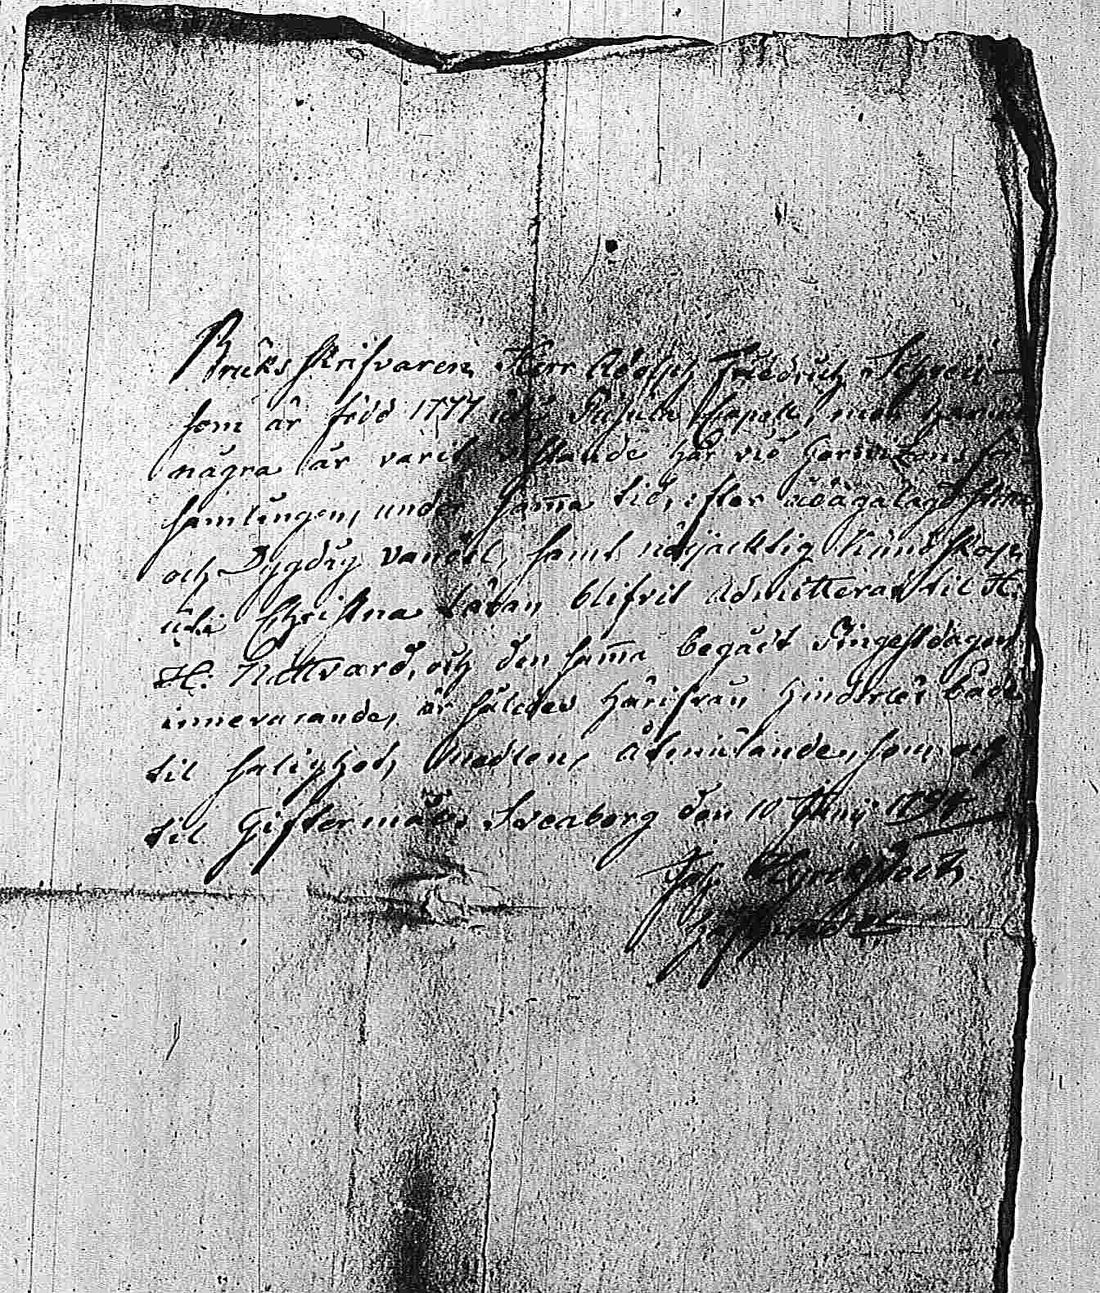 Bruks Skrifvaren Herr Adolph Friedrich
som är född 1777 Capell, med
några år varit vistande här vid Garnizons för-
samlingen, under samma tid, efter ådagalagd
och Dygdig vandel, samt nöjacktig Kundskap
uti Christna Läran blifvit admitterad til H.
H. Nattvard, och den samma begådt Pingestdagen
innevarande, är således härifrån hinderlös både
til salighets medlens åtniutande, som och
til Giftermål. Sveaborg den 10 Junij 1794
Joh.